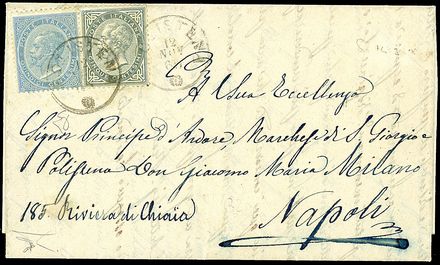 POSTE ITALIANE
POSTE ITALIANE
12
NOV
A Sua Eccellenza
Signor Principe d'Ardore Marchese di S. Giorgio e
Polistena Don Giacomo Maria Milano
185 Riviera di Chiaia
Napoli